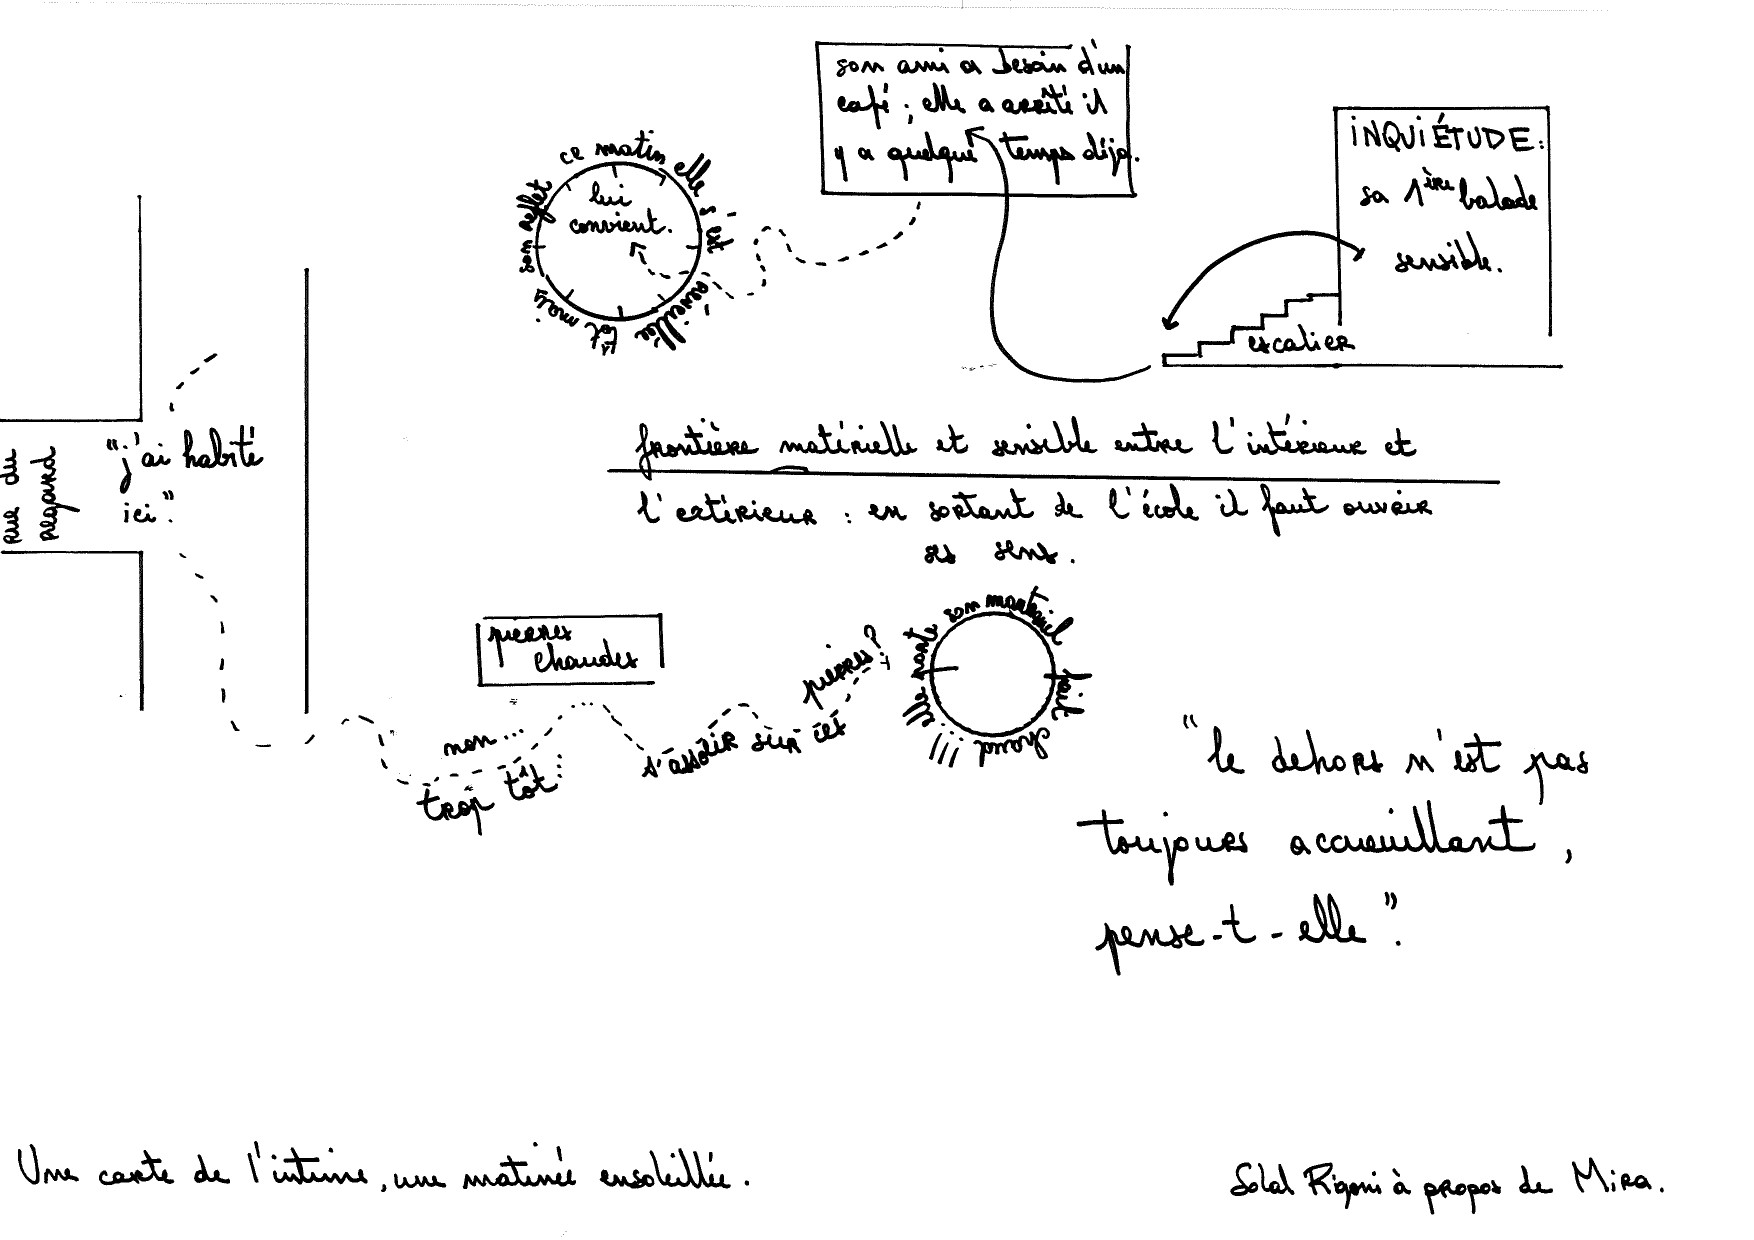 son ami a besoin d'un
café ; elle a arrêté il
y a quelque temps déjà.
INQUIÉTUDE :
sa 1ère balade
sensible.
escalier
ce matin elle s'est réveillée tôt, noir.
son reflet
lui
convient.
frontière matérielle et sensible entre l'intérieur et
l'extérieur : en sortant de l'école il faut ouvrir
ses sens.
rue du
regard
"j'ai habité
ici."
pierres
chaudes
non...
trop tôt
s'assoir sur ces
pierres ?
elle porte son marteniel
fait chaud
"le dehors n'est pas
toujours accueuillant,
pense-t-elle".
Une carte de l'intime, une matinée ensoleillée.
Solal Rigoni à propos de Mira.